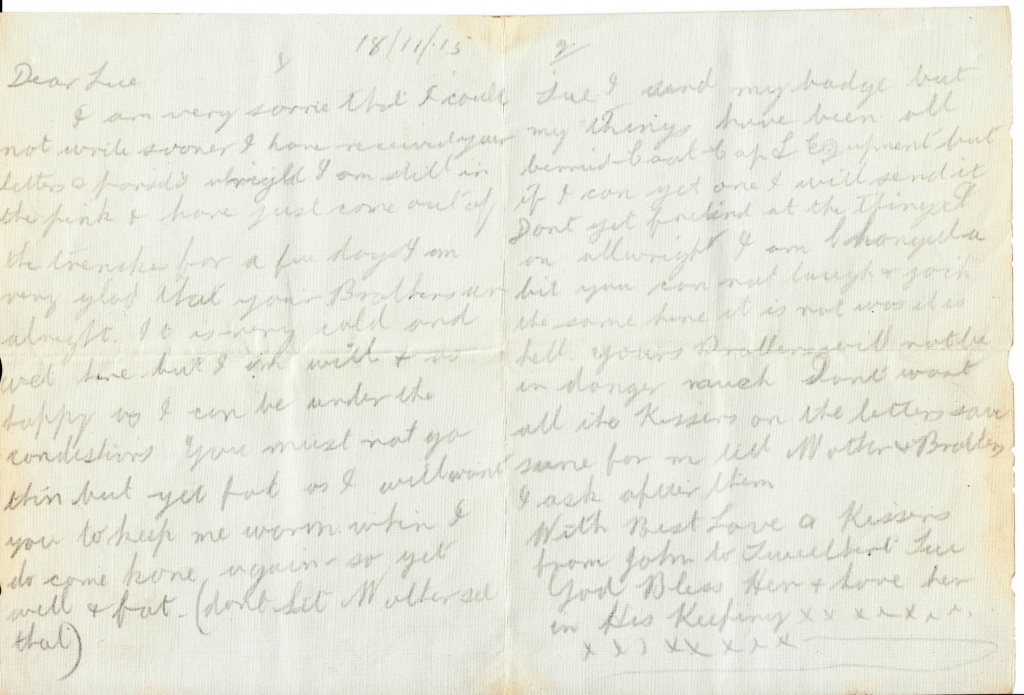 18/11/15
Dear Lue
I am very sorrie that I could
not write sooner I have received your
letters & parsels alright I am still in
the pink & have just come out of
the trenche for a few days I am
very glad that your Brothers ar
alright. It is very cold and
wet here but I am well & as
happy as I can be under the
condistions You must not go
thin but get fat as I will want
you to keep me worm when I
do come home again - so get
well & fat. (dont let Mother see
that)
2
Lue I send my badge but
my things have been all
berried Coat Cap & Equpment but
if I can get one I will send it
Dont get at the things I
on allwright I am changed a
bit you can not laugh & joik
the same here it is not war it is
hell. yours Brothers will not be
in danger much Dont want
all the Kissers on the letters save
some for m tell Mother & Brothers
I ask after them
With Best Love & Kissers
from John to Sweethert Lue
God Bless Her & have her
in His Keeping x x x x x x x
x x x x x x x x